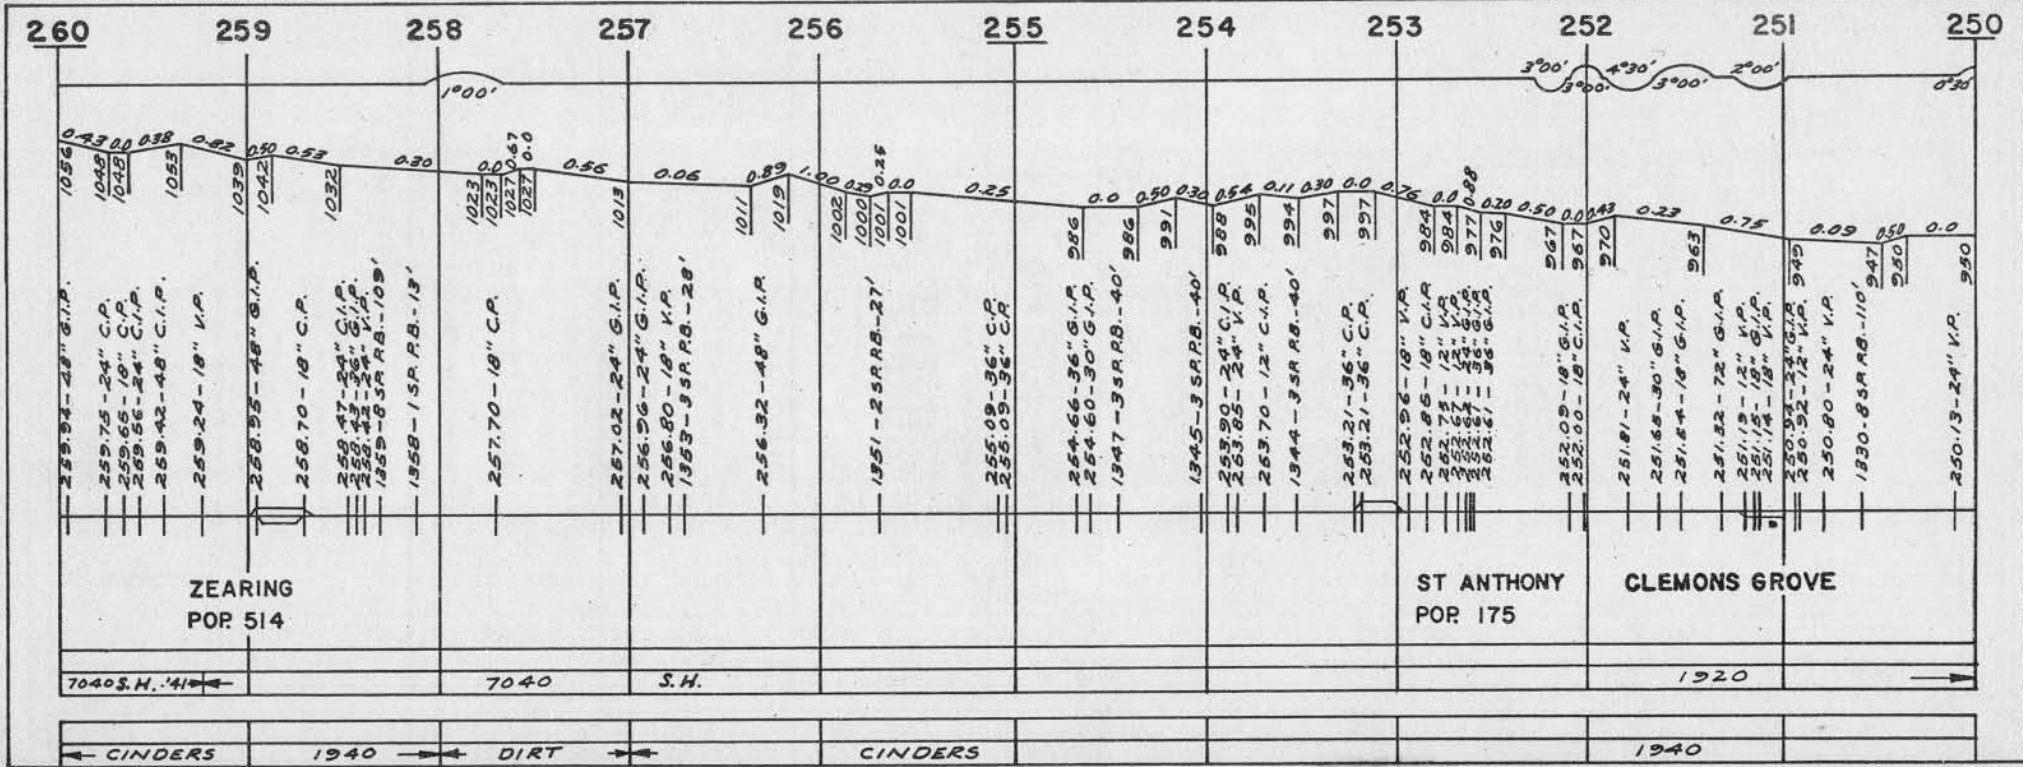 260 259 258 257 256 255 254 253 252 251 250
1°00' 3°00' 3°00' 4°30' 3°00' 2°00' 0°30'
0.43 0.0 0.38 0.82 0.50 0.53 0.30 0.0 0.67 0.0 0.56 0.06 0.89 1.00 0.29 0.25 0.0 0.25 0.0 0.50 0.30 0.54 0.11 0.30 0.0 0.76 0.0 0.88 0.20 0.50 0.0 0.43 0.23 0.75 0.09 0.50 0.0
1056 1048 1048 1053 1039 1042 1032 1023 1023 1027 1027 1013 1011 1019 1002 1000 1001 1001 986 986 991 988 995 994 997 997 984 984 977 976 967 967 970 963 949 947 950 950
259.94-48" G.I.P.
259.75-24" C.P.
259.65-18" C.P.
259.56-24" C.I.P.
259.42-48" C.I.P.
259.24-18" V.P.
258.95-48" G.I.P.
258.70-18" C.P.
258.47-24" C.I.P.
258.43-36" G.I.P.
258.42-24" V.P.
1359-8 SP. P.B.-109'
1358-1 SP. P.B.-13'
257.70-18" C.P.
257.02-24" G.I.P.
256.96-24" G.I.P.
256.80-18" V.P.
1353-3 SP. P.B.-28'
256.32-48" G.I.P.
1351-2 SP. P.B.-27'
255.09-36" C.P.
255.09-36" C.P.
254.66-36" G.I.P.
254.60-30" G.I.P.
1347-3 SP. P.B.-40'
1345-3 SP. P.B.-40'
253.90-24" C.I.P.
253.85-24" V.P.
253.70-12" C.I.P.
1344-3 SP. P.B.-40'
253.21-36" C.P.
253.21-36" C.P.
252.96-18" V.P.
252.85-18" C.I.P.
252.75-12" V.P.
252.67-12" V.P.
252.64-24" G.I.P.
252.61-36" G.I.P.
252.61-36" G.I.P.
252.09-18" G.I.P.
252.00-18" C.I.P.
251.81-24" V.P.
251.65-30" G.I.P.
251.54-18" G.I.P.
251.32-72" G.I.P.
251.19-12" V.P.
251.15-18" G.I.P.
251.14-18" V.P.
250.94-24" G.I.P.
250.92-12" V.P.
250.80-24" V.P.
1330-8 SP. P.B.-110'
250.13-24" V.P.
ZEARING
POP. 514
ST ANTHONY
POP. 175
CLEMONS GROVE
7040 S.H. '41 7040 S.H. 1920
CINDERS 1940 DIRT CINDERS 1940